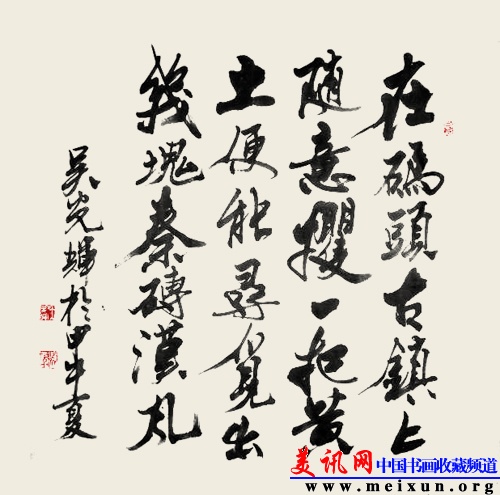 在碼頭古鎮上
隨意攫一把黃
土便能尋覓出
幾塊秦磚漢瓦
吳光輝於甲申夏
美讯网 中国书画收藏频道
www.meixun.org